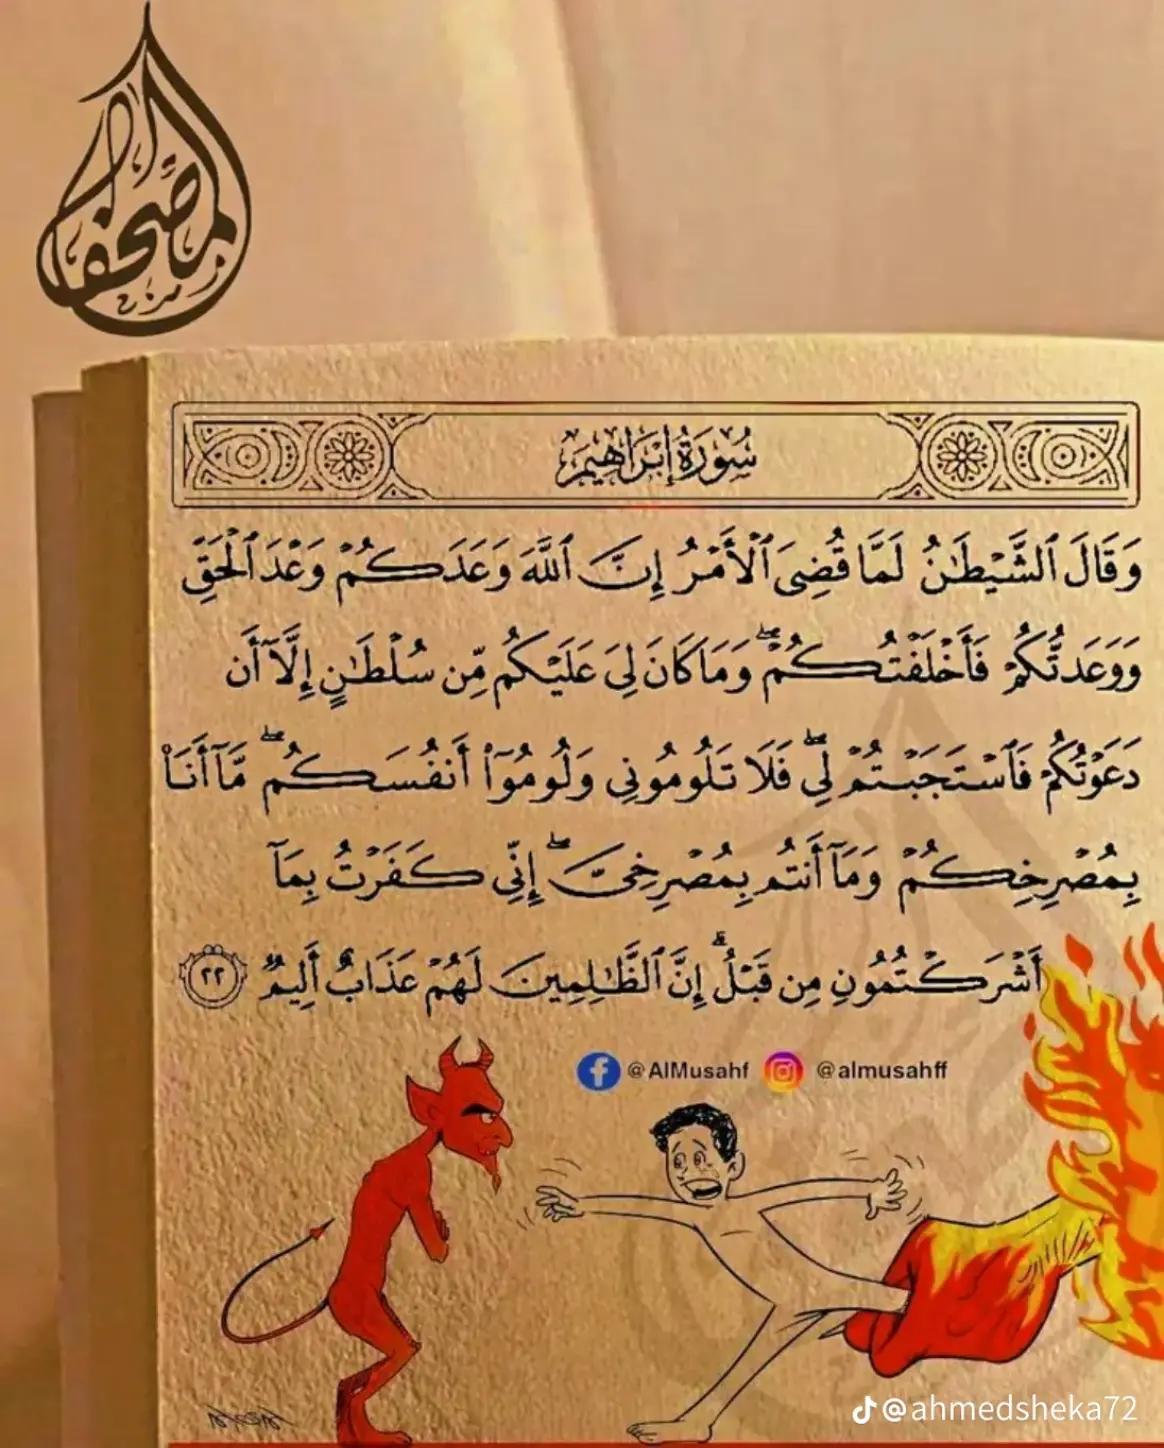 المصحف
سُورَةُ إِبْرَاهِيمَ
وَقَالَ ٱلشَّيْطَٰنُ لَمَّا قُضِيَ ٱلْأَمْرُ إِنَّ ٱللَّهَ وَعَدَكُمْ وَعْدَ ٱلْحَقِّ
وَوَعَدتُّكُمْ فَأَخْلَفْتُكُمْ ۖ وَمَا كَانَ لِيَ عَلَيْكُم مِّن سُلْطَٰنٍ إِلَّآ أَن
دَعَوْتُكُمْ فَٱسْتَجَبْتُمْ لِي ۖ فَلَا تَلُومُونِي وَلُومُوٓا۟ أَنفُسَكُم ۖ مَّآ أَنَا۠
بِمُصْرِخِكُمْ وَمَآ أَنتُم بِمُصْرِخِيَّ ۖ إِنِّي كَفَرْتُ بِمَآ
أَشْرَكْتُمُونِ مِن قَبْلُ ۗ إِنَّ ٱلظَّٰلِمِينَ لَهُمْ عَذَابٌ أَلِيمٌ ٢٢
@AlMusahf @almusahff
@ahmedsheka72